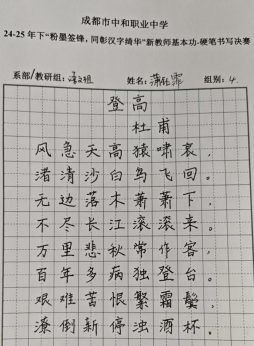 成都市中和职业中学
24-25 年下“粉墨签锋，同彰汉字绮华”新教师基本功-硬笔书写决赛
系部/教研组：语文组 姓名： 组别：4.
登高
杜甫
风急天高猿啸哀，
渚清沙白鸟飞回。
无边落木萧萧下，
不尽长江滚滚来。
万里悲秋常作客，
百年多病独登台。
艰难苦恨繁霜鬓，
潦倒新停浊酒杯。